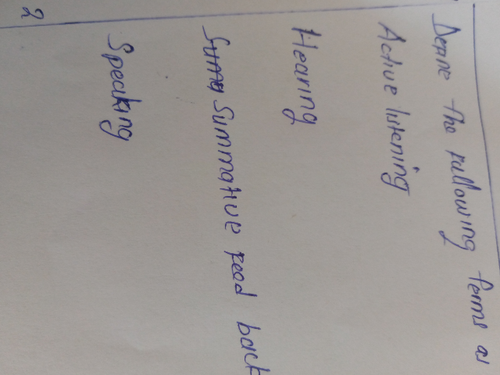 Define the following terms as
Active listening
Hearing
Summative read back
Speaking
2